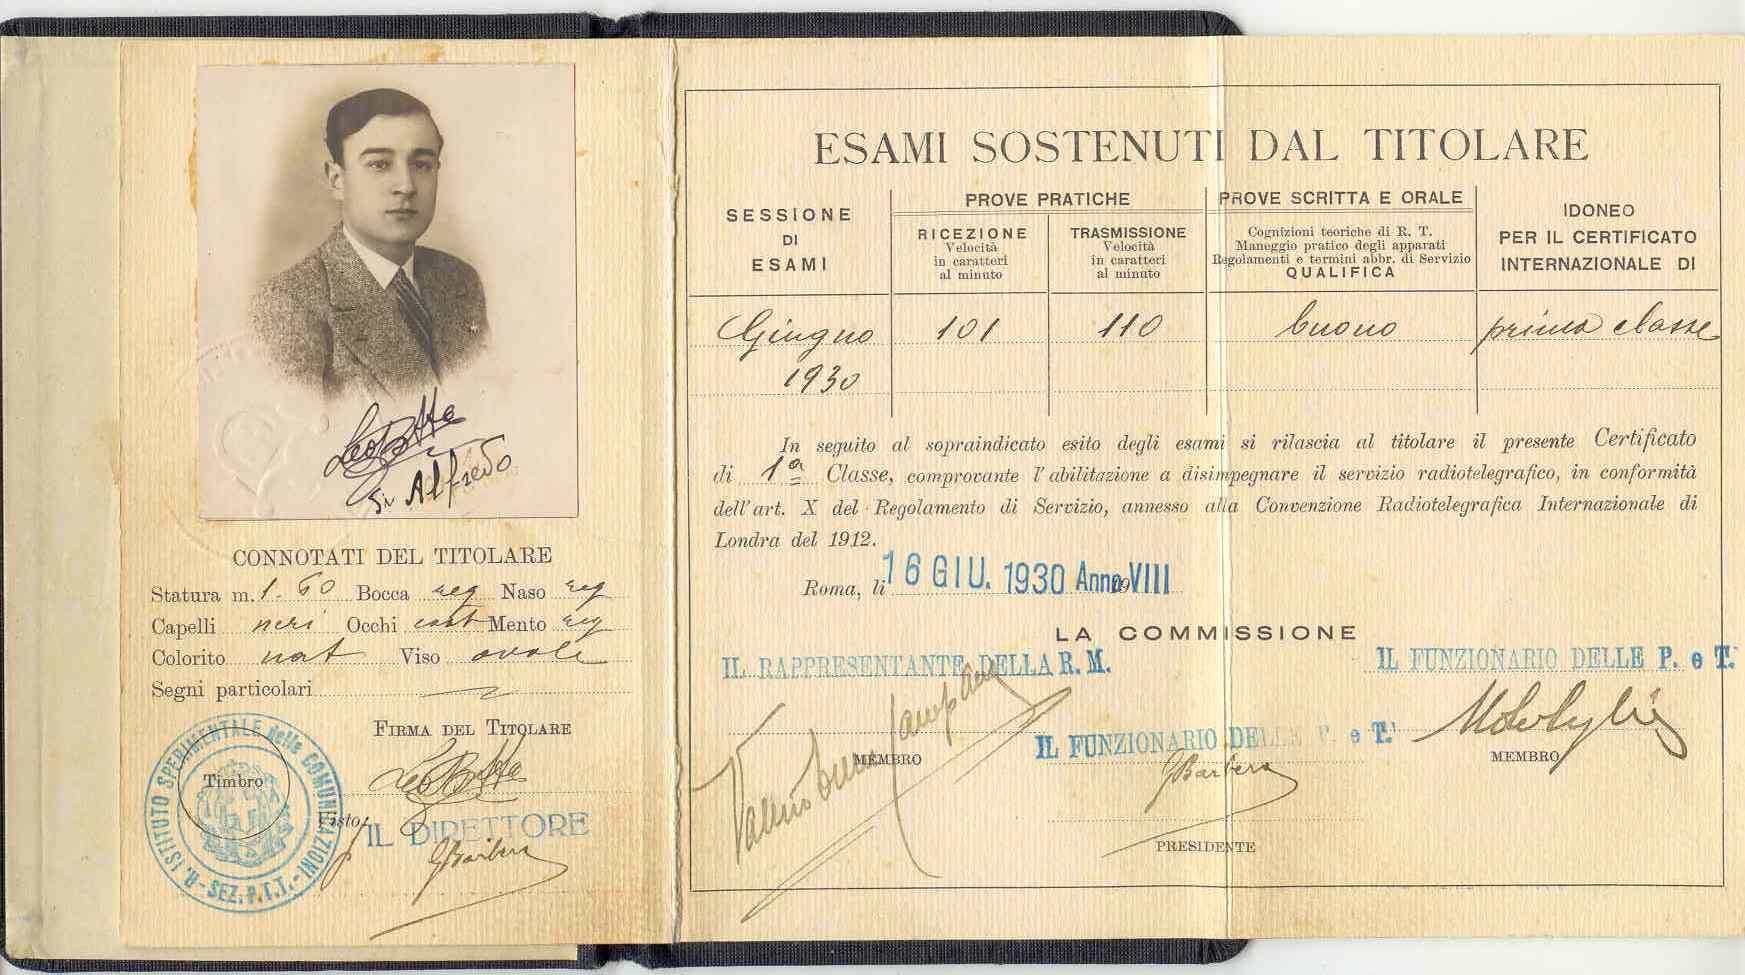 Leo Botta
di Alfredo
CONNOTATI DEL TITOLARE
Statura m. 1.60 Bocca reg Naso reg
Capelli neri Occhi cast Mento reg
Colorito nat Viso ovale
Segni particolari
FIRMA DEL TITOLARE
Leo Botta
Timbro
R. ISTITUTO SPERIMENTALE delle COMUNICAZIONI - SEZ. P.T.T. -
Visto:
IL DIRETTORE
GBarbera
ESAMI SOSTENUTI DAL TITOLARE
SESSIONE
DI
ESAMI
PROVE PRATICHE
RICEZIONE
Velocità
in caratteri
al minuto
TRASMISSIONE
Velocità
in caratteri
al minuto
PROVE SCRITTA E ORALE
Cognizioni teoriche di R. T.
Maneggio pratico degli apparati
Regolamenti e termini abbr. di Servizio
QUALIFICA
IDONEO
PER IL CERTIFICATO
INTERNAZIONALE DI
Giugno 101 110 buono prima classe
1930
In seguito al sopraindicato esito degli esami si rilascia al titolare il presente Certificato
di 1ª Classe, comprovante l'abilitazione a disimpegnare il servizio radiotelegrafico, in conformità
dell'art. X del Regolamento di Servizio, annesso alla Convenzione Radiotelegrafica Internazionale di
Londra del 1912.
Roma, li 16 GIU. 1930 Anno VIII
LA COMMISSIONE
IL RAPPRESENTANTE DELLA R. M.
IL FUNZIONARIO DELLE P. e T.
MEMBRO
IL FUNZIONARIO DELLE P. e T.
GBarbera
MEMBRO
PRESIDENTE